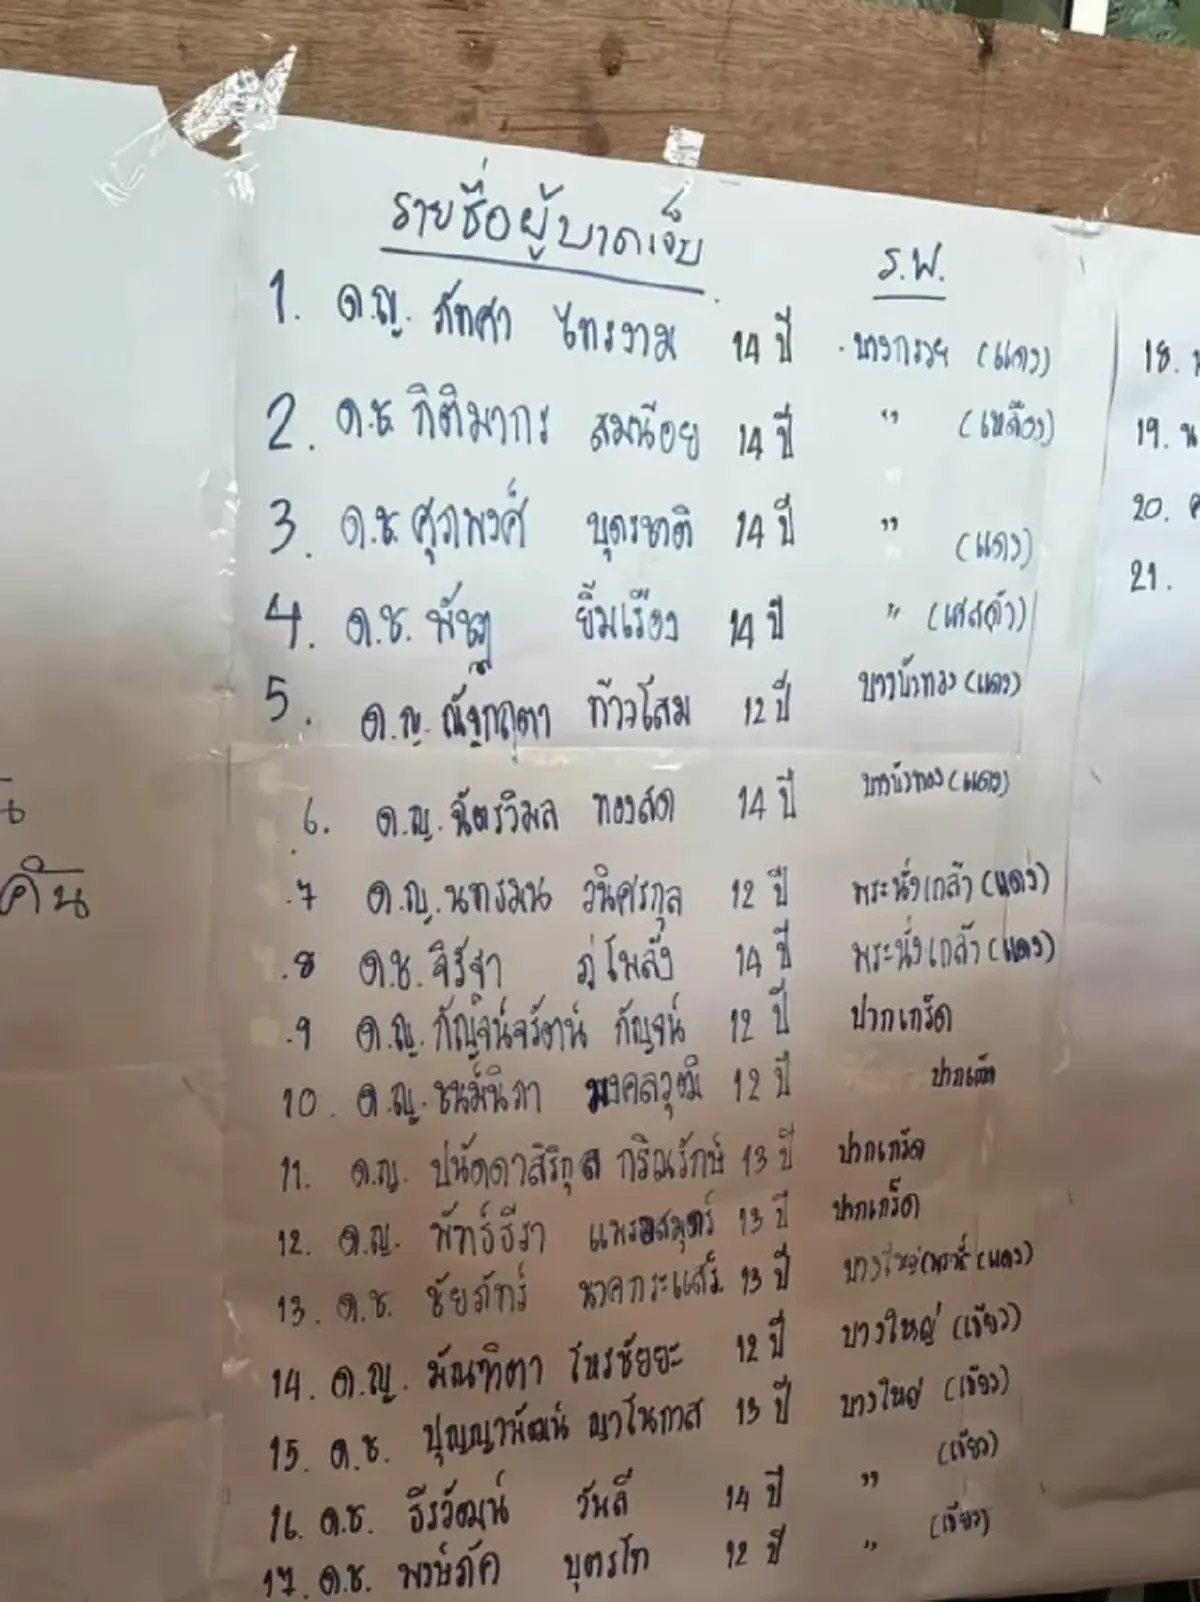 รายชื่อผู้บาดเจ็บ ร.พ.
1. ด.ญ. ภัทศา ไทรงาม 14 ปี บางกรวย (แดง)
2. ด.ช. กิติมากร สมน้อย 14 ปี " (เหลือง)
3. ด.ช. ศุภพงศ์ บุตรชาติ 14 ปี " (แดง)
4. ด.ช. พัชฎ ยิ้มเรือง 14 ปี "
5. ด.ญ. ณัฐกฤตา ท้าวโสม 12 ปี บางบัวทอง (แดง)
6. ด.ญ. ฉัตรวิมล ทองสด 14 ปี บางบัวทอง (แดง)
7 ด.ญ. นทรมน วนิศรกุล 12 ปี พระนั่งเกล้า (แดง)
8 ด.ช. จิรัฐา ภู่โพลัง 14 ปี พระนั่งเกล้า (แดง)
9 ด.ญ. กัญจน์จรัตน์ กัญจน์ 12 ปี ปากเกร็ด
10. ด.ญ. ชนม์นิภา มงคลวุฒิ 12 ปี ปากเกร็ด
11. ด.ญ. ปนัดดาสิริกุล กริณรักษ์ 13 ปี ปากเกร็ด
12. ด.ญ. พัทธ์ธีรา แพรสมุตร์ 13 ปี ปากเกร็ด
13. ด.ช. ชัยภัทร์ นาคกระแสร์ 13 ปี บางใหญ่ (แดง)
14. ด.ญ. มัณฑิตา โหรชัยยะ 12 ปี บางใหญ่ (เขียว)
15. ด.ช. ปุญญาพัฒน์ ญาโนภาส 13 ปี บางใหญ่ (เขียว)
16. ด.ช. ธีรวัฒน์ วันลี 14 ปี " (เขียว)
17. ด.ช. พงษ์ภัค บุตรโท 12 ปี " (เขียว)
18.
19. น
20.
21.
คืน